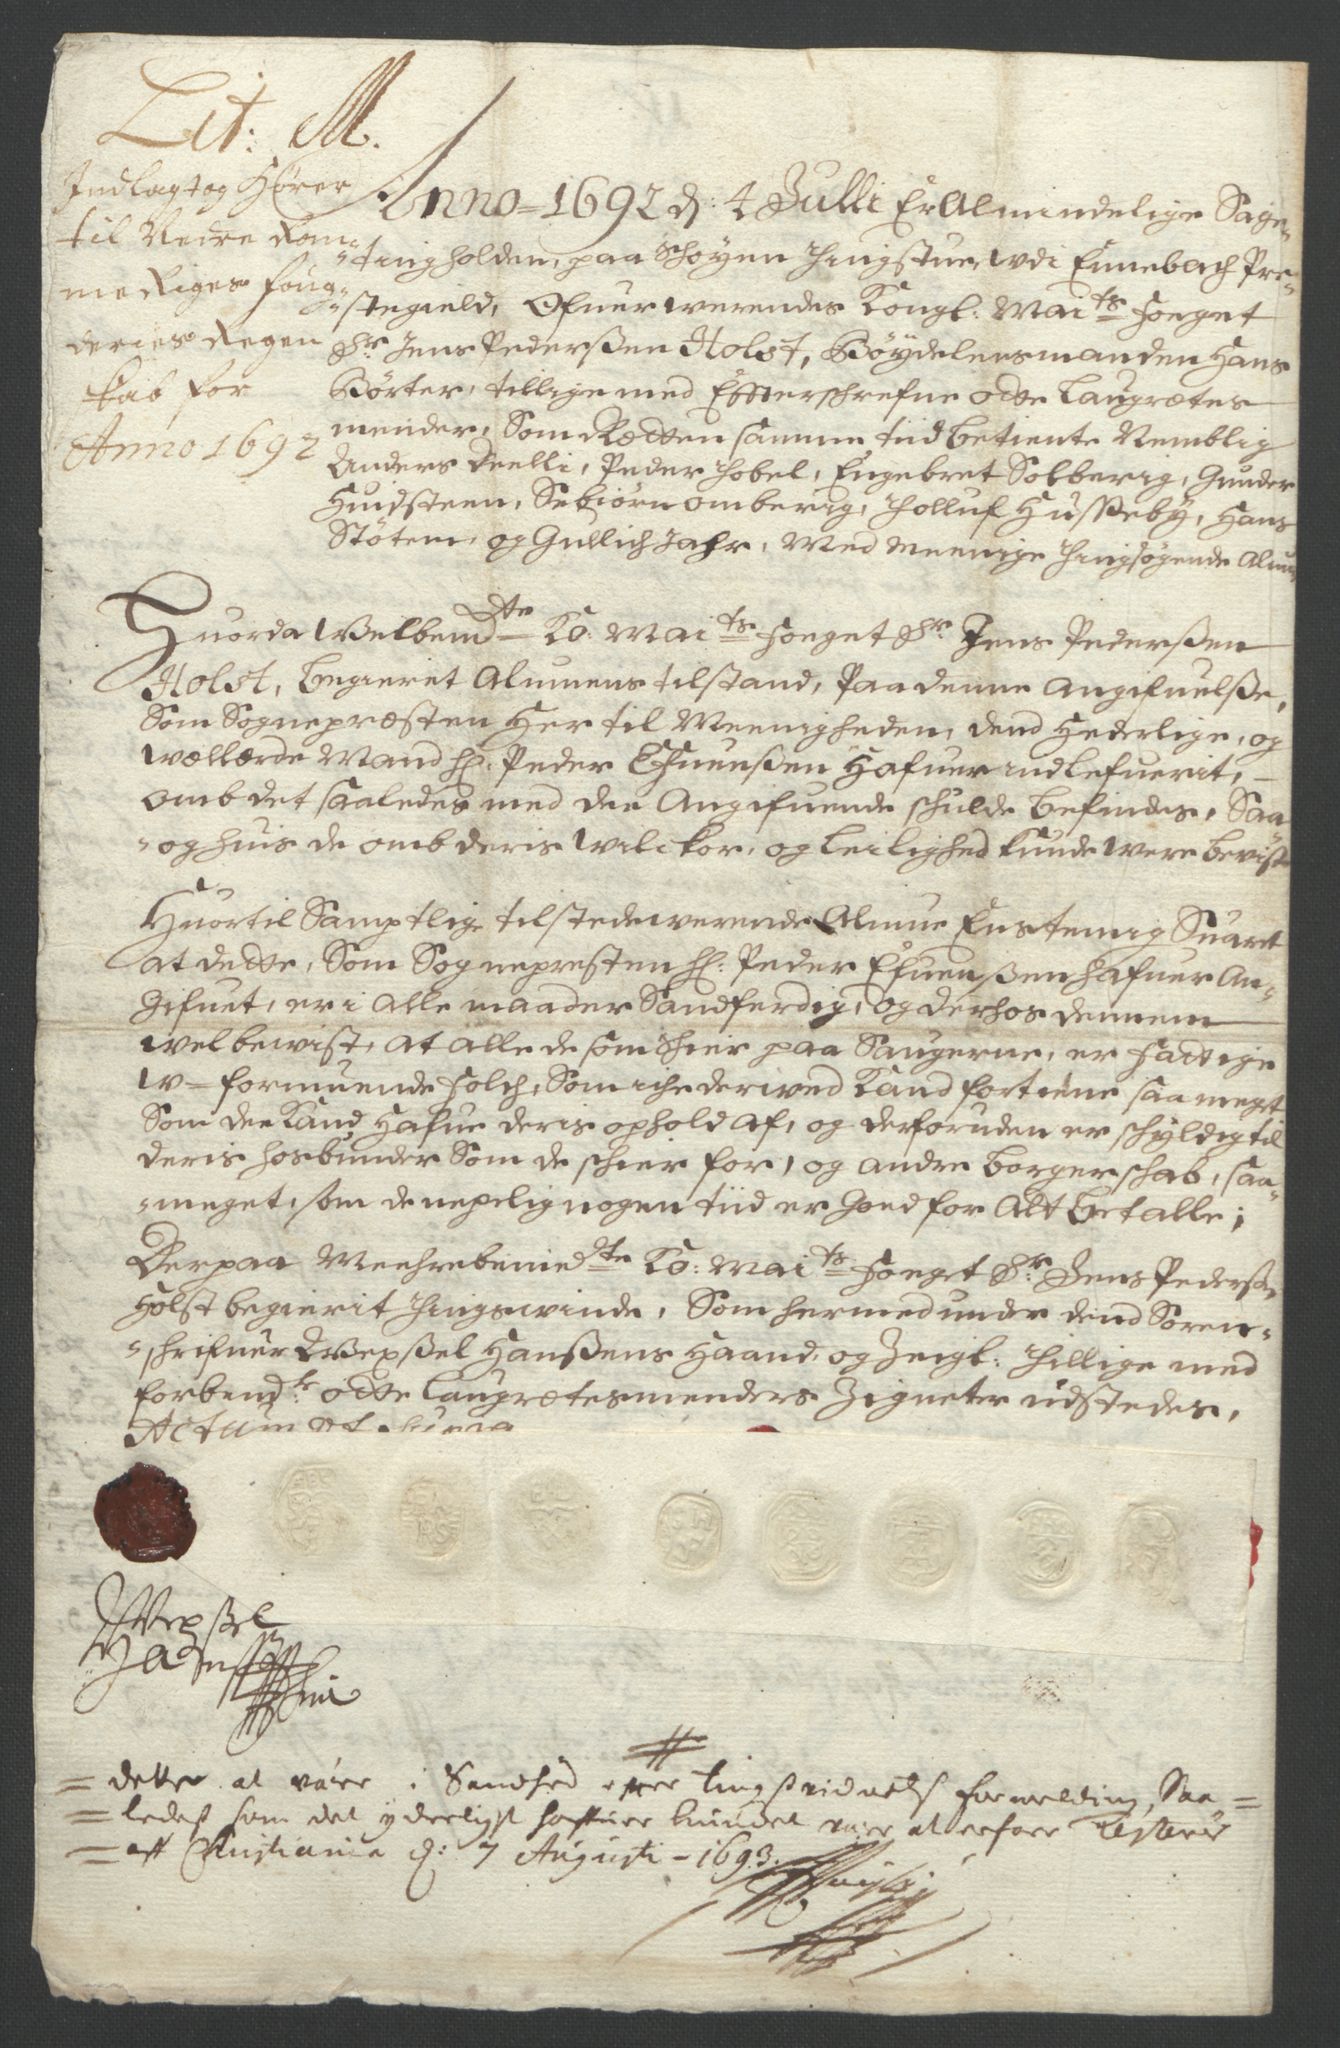 Lit: M.
Indlagt og Hörer
til Nedre Rom-
me Riges foug-
deries Regen
skab for
Anno 1692
Anno 1692 d: 4 Julli Er Almindelige Sage-
ting holden, paa Schøyen Tingstue, udi Ennebach Pre-
stegield, Ofuerwerendes Kongl: Mai:ts foeget
Sr: Jens Pederßen Holst, Böydelensmanden Hans
Börter, tillige med Effterschrefne otte Laugrettes
mender, Som Retten samme tiid betiente Nemblig
Anders Deelli, Peder Tobel, Engebret Solberrig, Gunder
Huidsteen, Sebiörn Omberrig, Tolluf Husseby, Hans
Stötem, og Gullich Jahr, Med Meenige Tingsøgende Almue
Huorda Welbemdte Ko: Mai:ts foeget Sr: Jens Pederßen
Holst, begieret Almuens tilstand, Paa denne Angifuelße,
Som Sognepræsten Her til Meenigheden, dend Hederlige, og
wællærde Mand H: Peder Efuenßen Hafuer indlefuerit,
omb det saaledes med dee Angifuende schulde befindes, Saa
og huis de omb deris wilckor, og leilighed kunde were bevist
Huortil Samptlig tilstedewerende Almue Enstemig Suaret
at dette, Som Sognepresten H: Peder Efuenßen Hafuer An-
gifuet, er i Alle maader Sandferdig, og derhos dennem
wel bewist, at alle de som schier paa Saugerne, er fattige
w-formuende folch, Som iche derwed kand fortiene saa meget
Som dee kand Hafue deris ophold af, og derforuden er schyldig til
deris Hosbunder Som de schier for, og andre borgerschab, saa-
meget, som de neppelig nogen tiid er goed for Alt betalle;
Derpaa Meehrbemeldte Ko: Mai:ts foeget Sr: Jens Pederßen
Holst begierit Tingswinde, Som hermed under dend Soren-
schrifuer Wepßel Hanßens Haand, og Zeigl: Tillige med
forbemdte otte Laugrettesmenders Zigneter udstedes,
Actum ut supra
Wepßel
Hanßen
Eghr
Dette at være i Sandhed effter tingsvidnets formelding, Saa-
ledes som det yderligst haffuer kundet være at erfare Testerer
aff Christiania d: 7 Augusti - 1693.